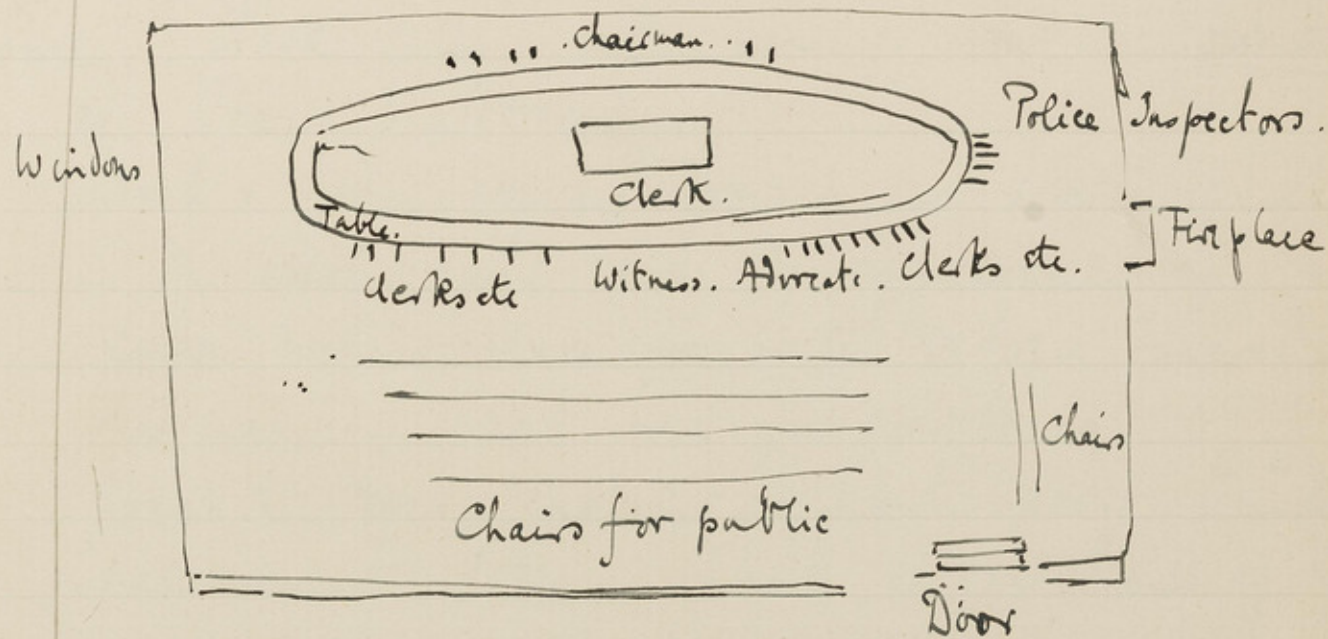 Chairman
Police Inspectors.
Windows
Clerk.
Table.
Fireplace
Clerks etc
Witness. Advocate. Clerks etc.
Chairs
Chairs for public
Door